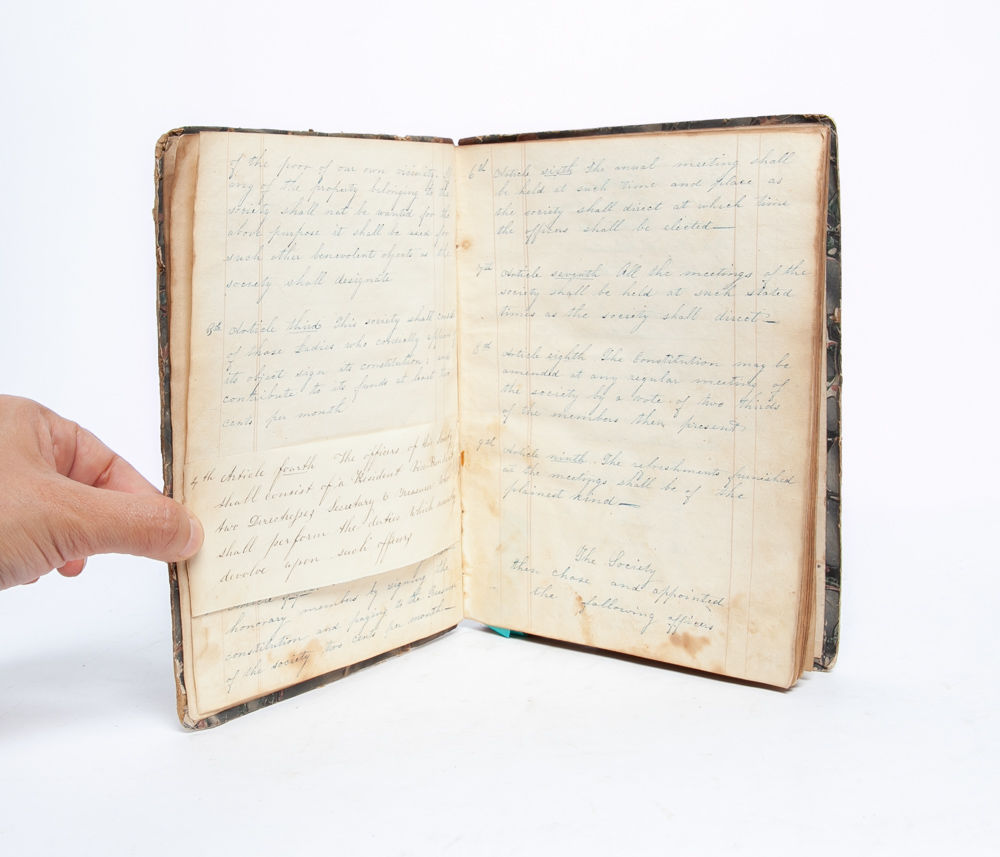 of the poor of our own vicinity. If
any of the property belonging to the
society shall not be wanted for the
above purpose it shall be used for
such other benevolent objects as the
society shall designate
3d Article third This society shall consist
of those Ladies who cordially approving
its object sign its constitution, and
contribute to its funds at least two
cents per month
4th Article fourth The officers of this Society
shall consist of a President Vice President
two Directresses Secretary & Treasurer who
shall perform the duties which usually
devolve upon such officers
honorary members by signing the
constitution and paying to the Treasurer
of the society two cents per month—
6th Article sixth The anual meeting shall
be held at such time and place as
the society shall direct at which time
the officers shall be elected—
7th Article seventh All the meetings of the
society shall be held at such stated
times as the society shall direct—
8th Article eighth The Constitution may be
amended at any regular meeting of
the society by a vote of two thirds
of the members then present
9th Article ninth. The refreshments furnished
at the meetings shall be of the
plainest kind—
The Society
then chose and appointed
the following officers